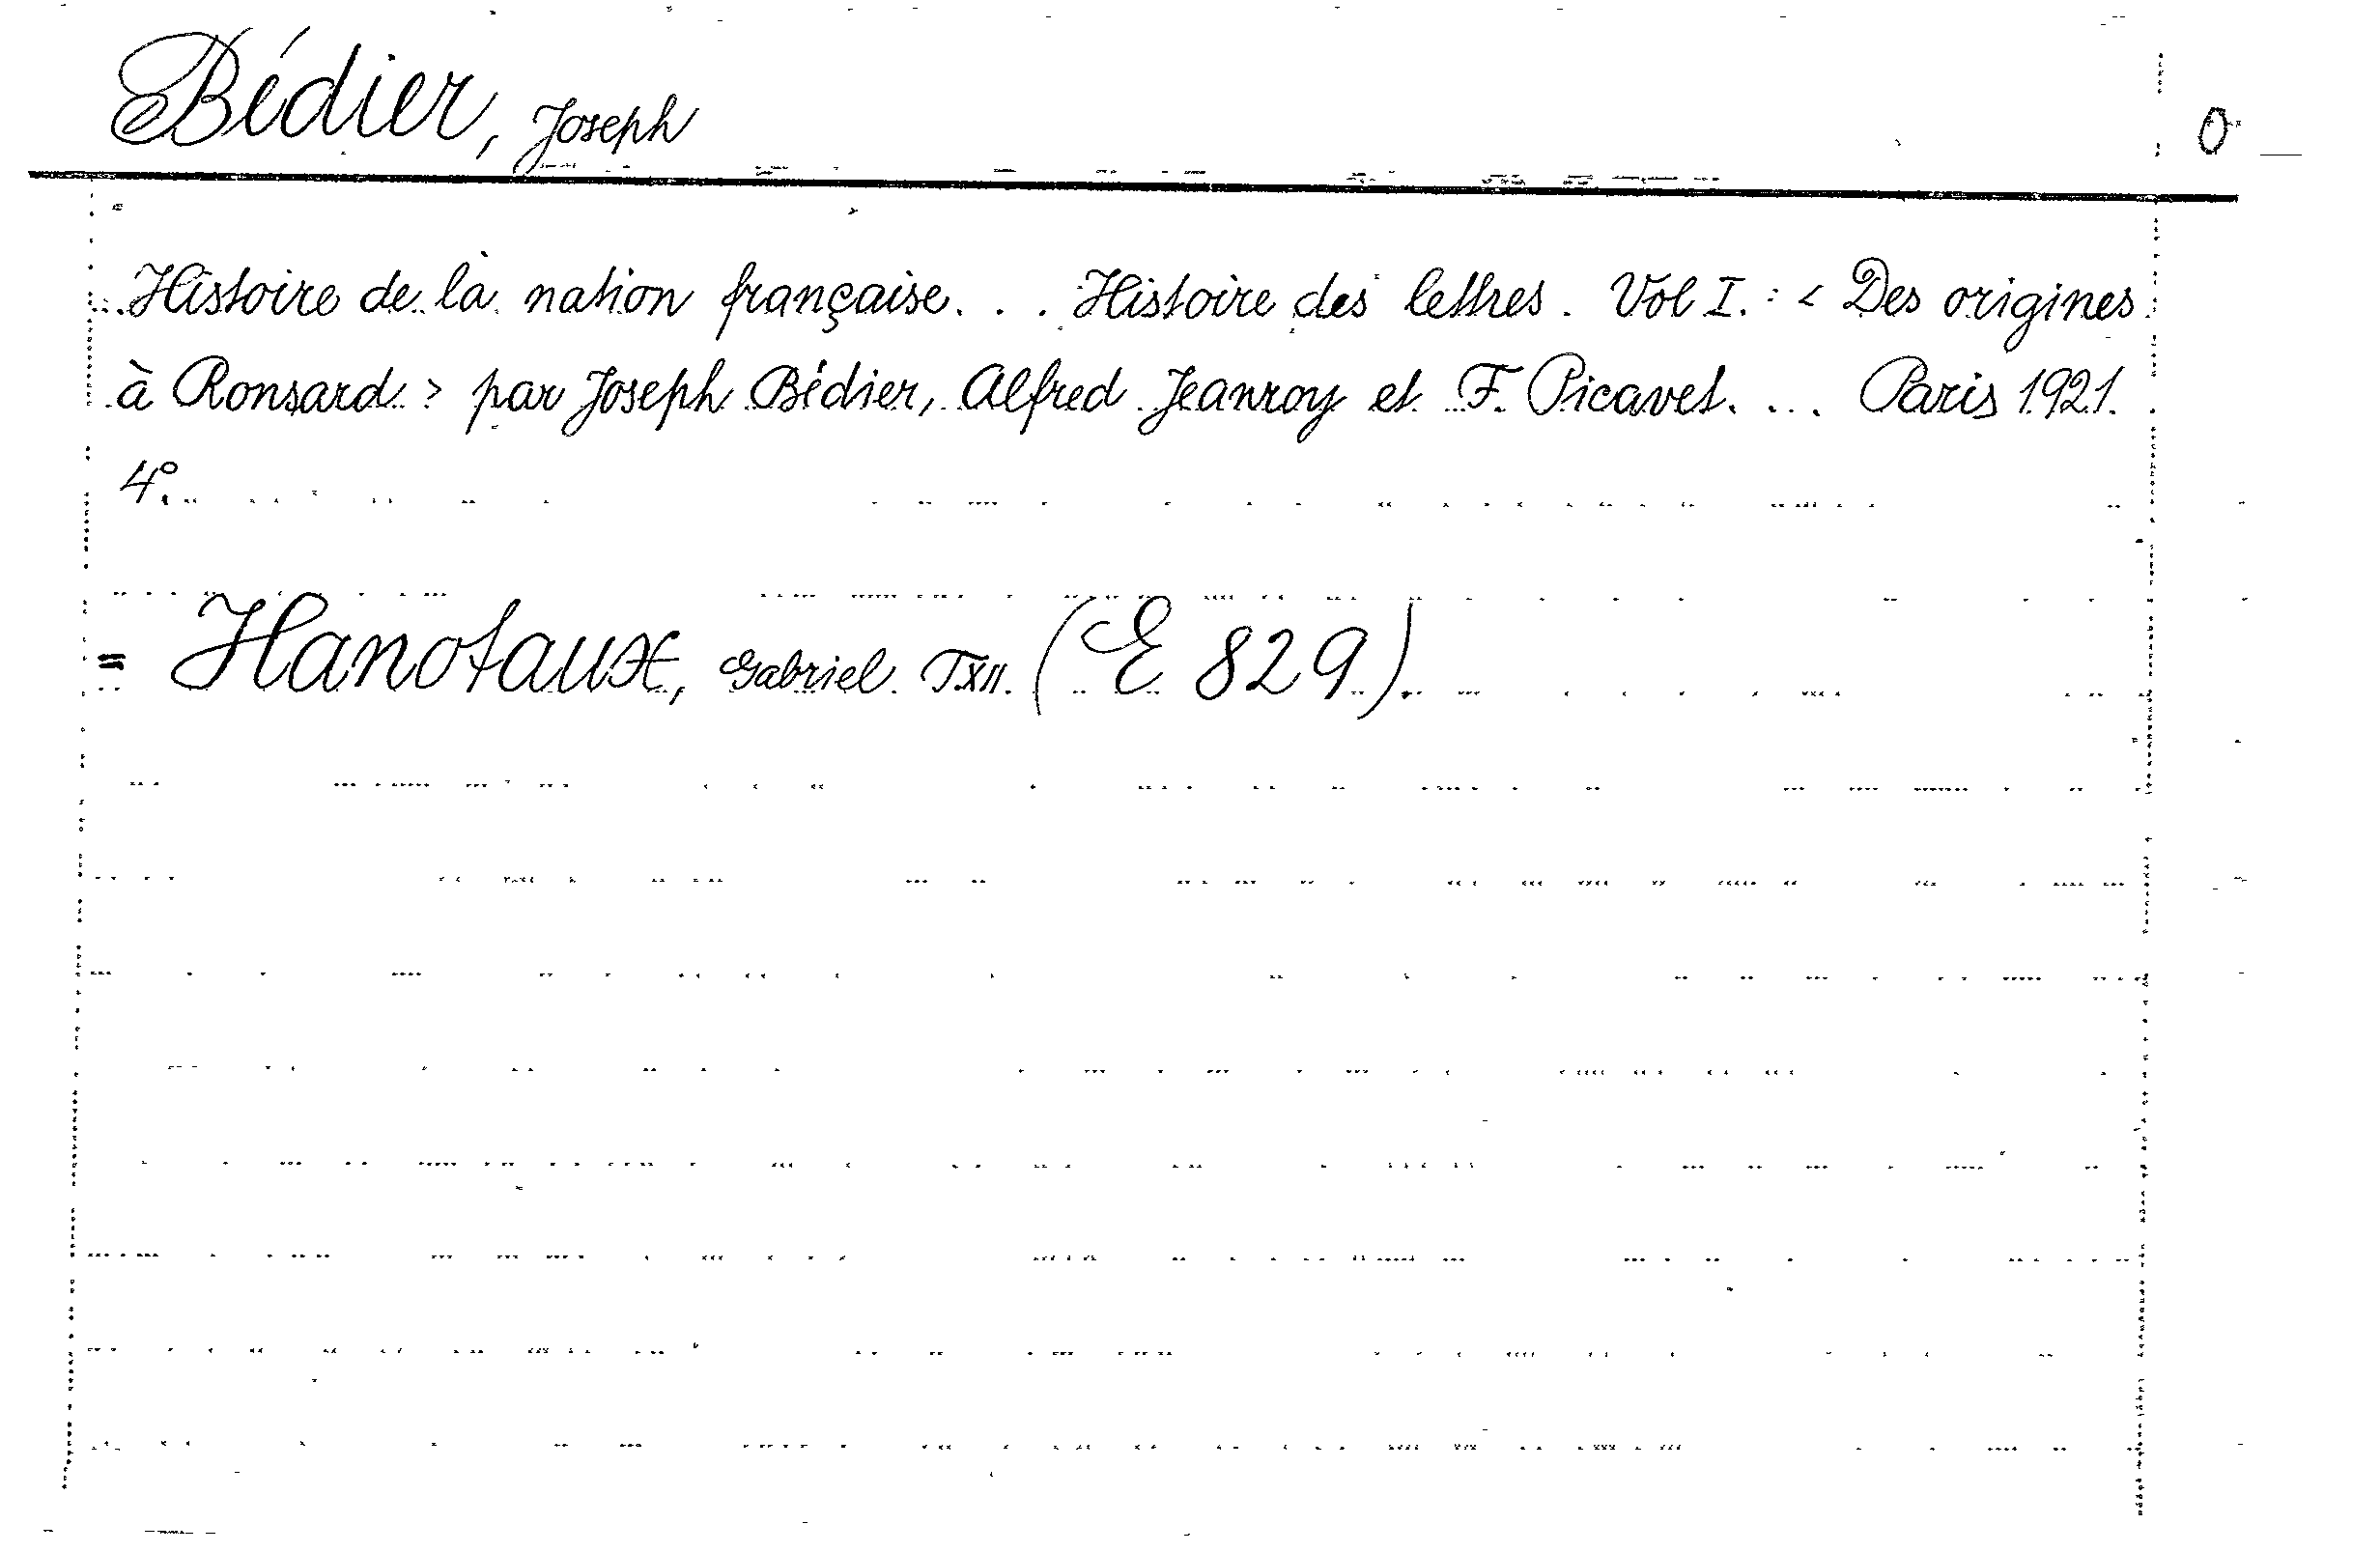 Bédier, Joseph 0
Histoire de la nation française. . . Histoire des lettres. Vol I. : < Des origines
à Ronsard > par Joseph Bédier, Alfred Jeanroy et F. Picavet. ... Paris 1921.
4°.
= Hanotaux, Gabriel T.XII. (E 829).